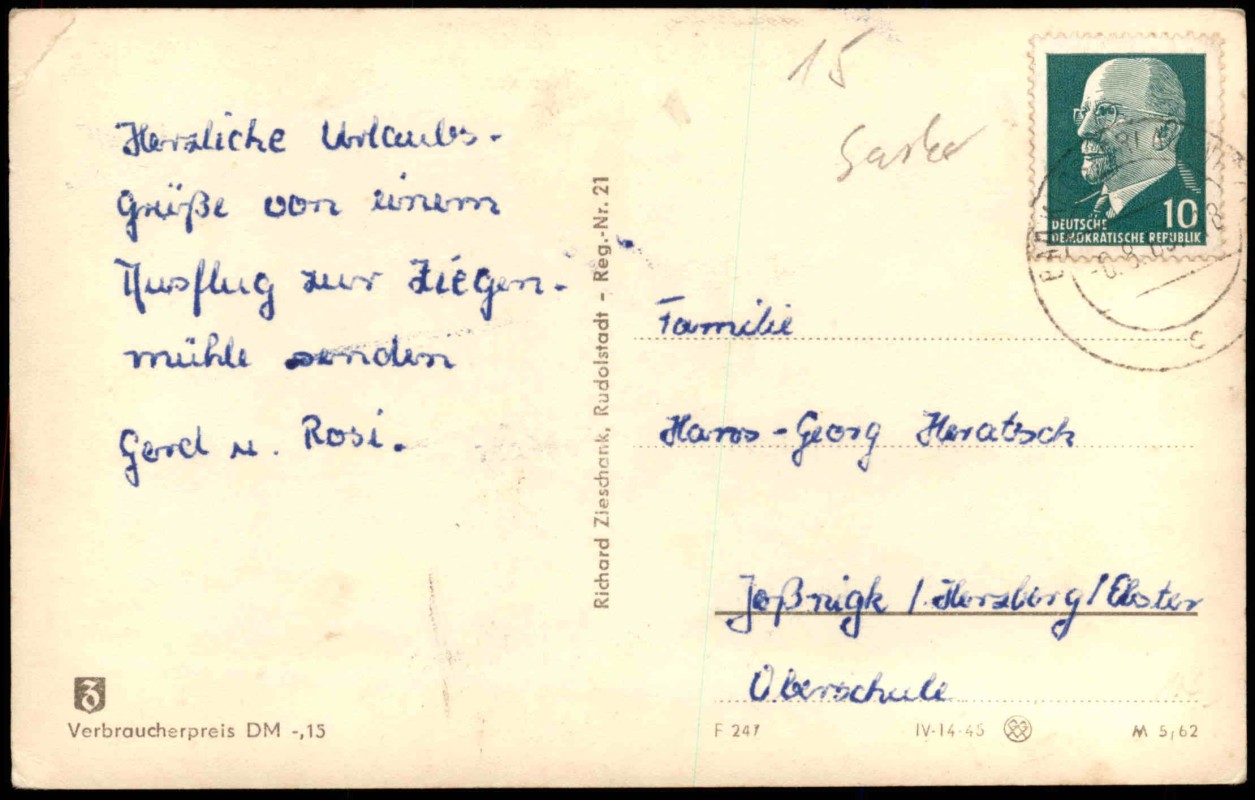 Herzliche Urlaubs-
Grüße von einem
Ausflug zur Ziegen-
mühle senden
Gerd u. Rosi.
Verbraucherpreis DM -,15
Richard Zieschank, Rudolstadt - Reg.-Nr. 21
15
DEUTSCHE 10
DEMOKRATISCHE REPUBLIK
C
Familie
Hans-Georg Heratsch
Joßnigk / Herzberg/Elster
Oberschule
F 247 IV-14-45 M 5/62